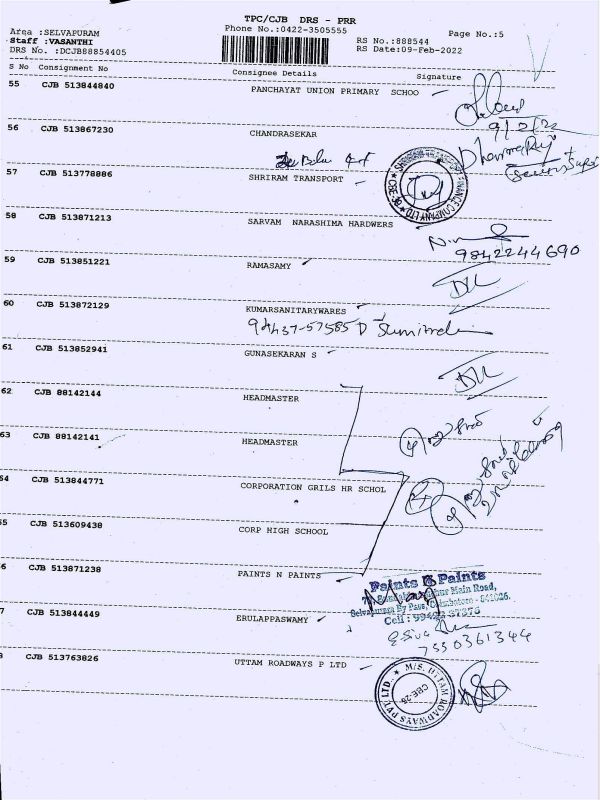 TPC/CJB DRS - PRR
Area :SELVAPURAM
Phone No.:0422-3505555
Page No.:5
Staff :VASANTHI
RS No.:888544
DRS No. :DCJB88854405
RS Date:09-Feb-2022
S No Consignment No Consignee Details Signature
55 CJB 513844840 PANCHAYAT UNION PRIMARY SCHOO
9/2/22
56 CJB 513867230 CHANDRASEKAR
57 CJB 513778886 SHRIRAM TRANSPORT
58 CJB 513871213 SARVAM NARASHIMA HARDWERS
9842244690
59 CJB 513851221 RAMASAMY
60 CJB 513872129 KUMARSANITARYWARES
61 CJB 513852941 GUNASEKARAN S
62 CJB 88142144 HEADMASTER
63 CJB 88142141 HEADMASTER
54 CJB 513844771 CORPORATION GRILS HR SCHOL
55 CJB 513609438 CORP HIGH SCHOOL
6 CJB 513871238 PAINTS N PAINTS
Paints & Paints
Main Road,
Selvapuram By Pass, Coimbatore - 641026.
7 CJB 513844449 ERULAPPASWAMY
7550361344
8 CJB 513763826 UTTAM ROADWAYS P LTD
M/S. UTTAM ROADWAYS PVT. LTD.
CBE-26